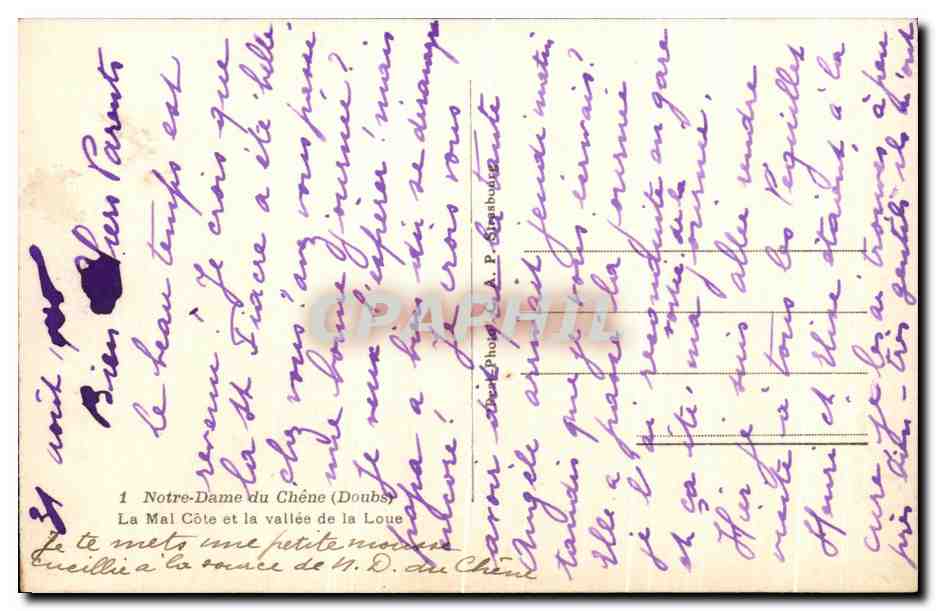 31 août
Bien Chers Parents
Le beau temps est
revenu. Je crois que
la St Fiacre a été belle
chez vous. Avez vous passé
une bonne journée?
Je veux l'espérer mais
papa a bien dû se déranger
encore! Je crois vous
avoir dit que la tante
Angèle arrivait jeudi matin
tandis que je vous écrivais?
Elle a passé la journée
je l'ai reconduite en gare
et ça été ma journée.
Hier je suis allée rendre
visite à tous les
Henri et Elise étaient à la
cure je les ai trouvés à peu
près bien - très gentils ils m'ont
1 Notre-Dame du Chêne (Doubs)
La Mal Côte et la vallée de la Loue
Je te mets une petite mousse
cueillie à la source de N. D. du Chêne
Photo C. A. P. Strasbourg
CPAPHIL